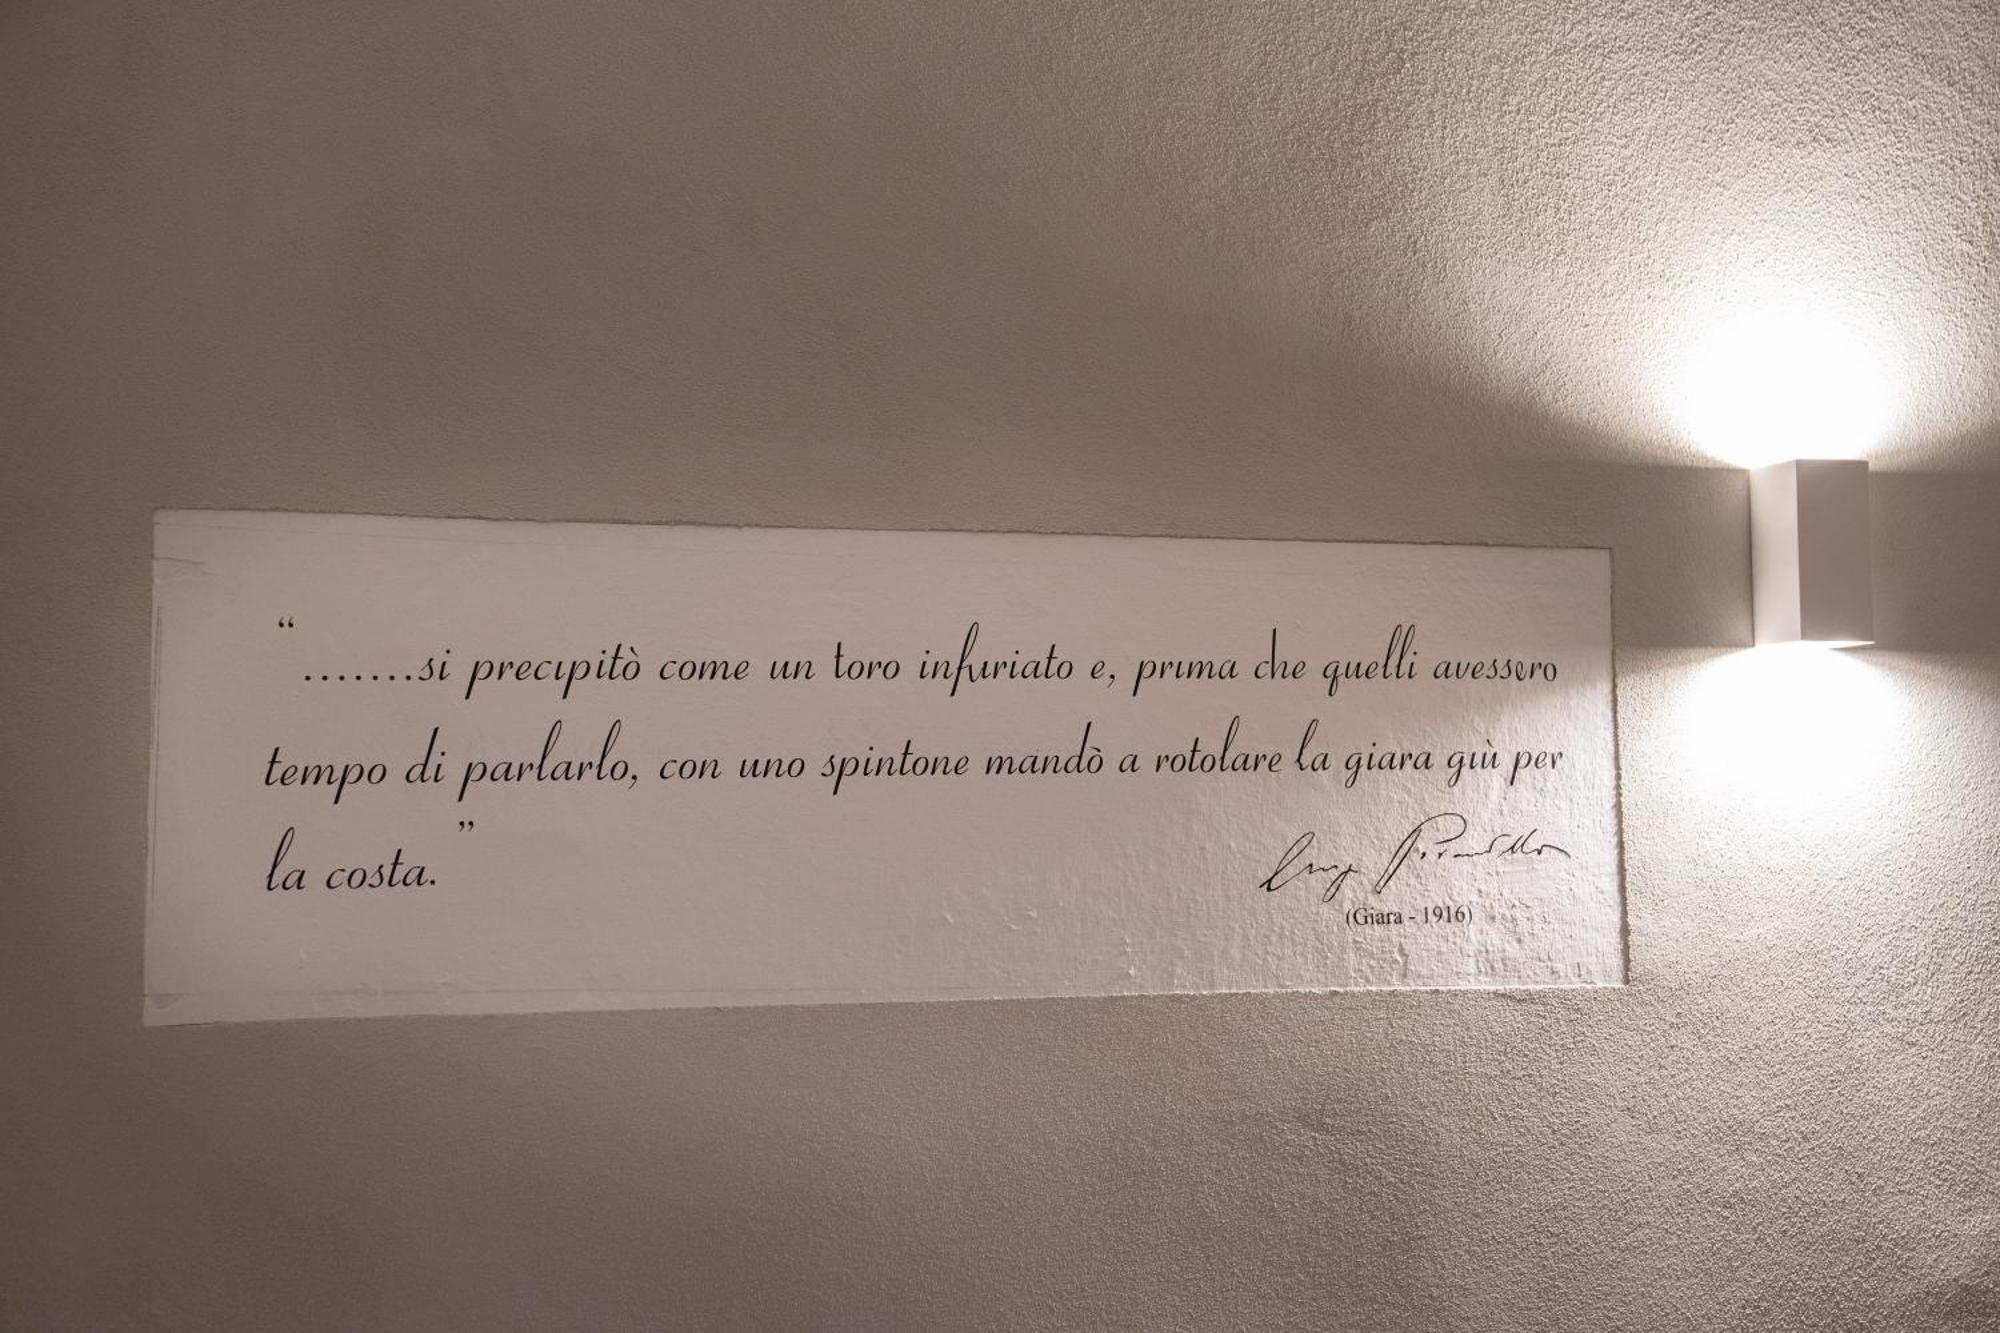 “.......si precipitò come un toro infuriato e, prima che quelli avessero
tempo di parlarlo, con uno spintone mandò a rotolare la giara giù per
la costa.”
Luigi Pirandello
(Giara - 1916)